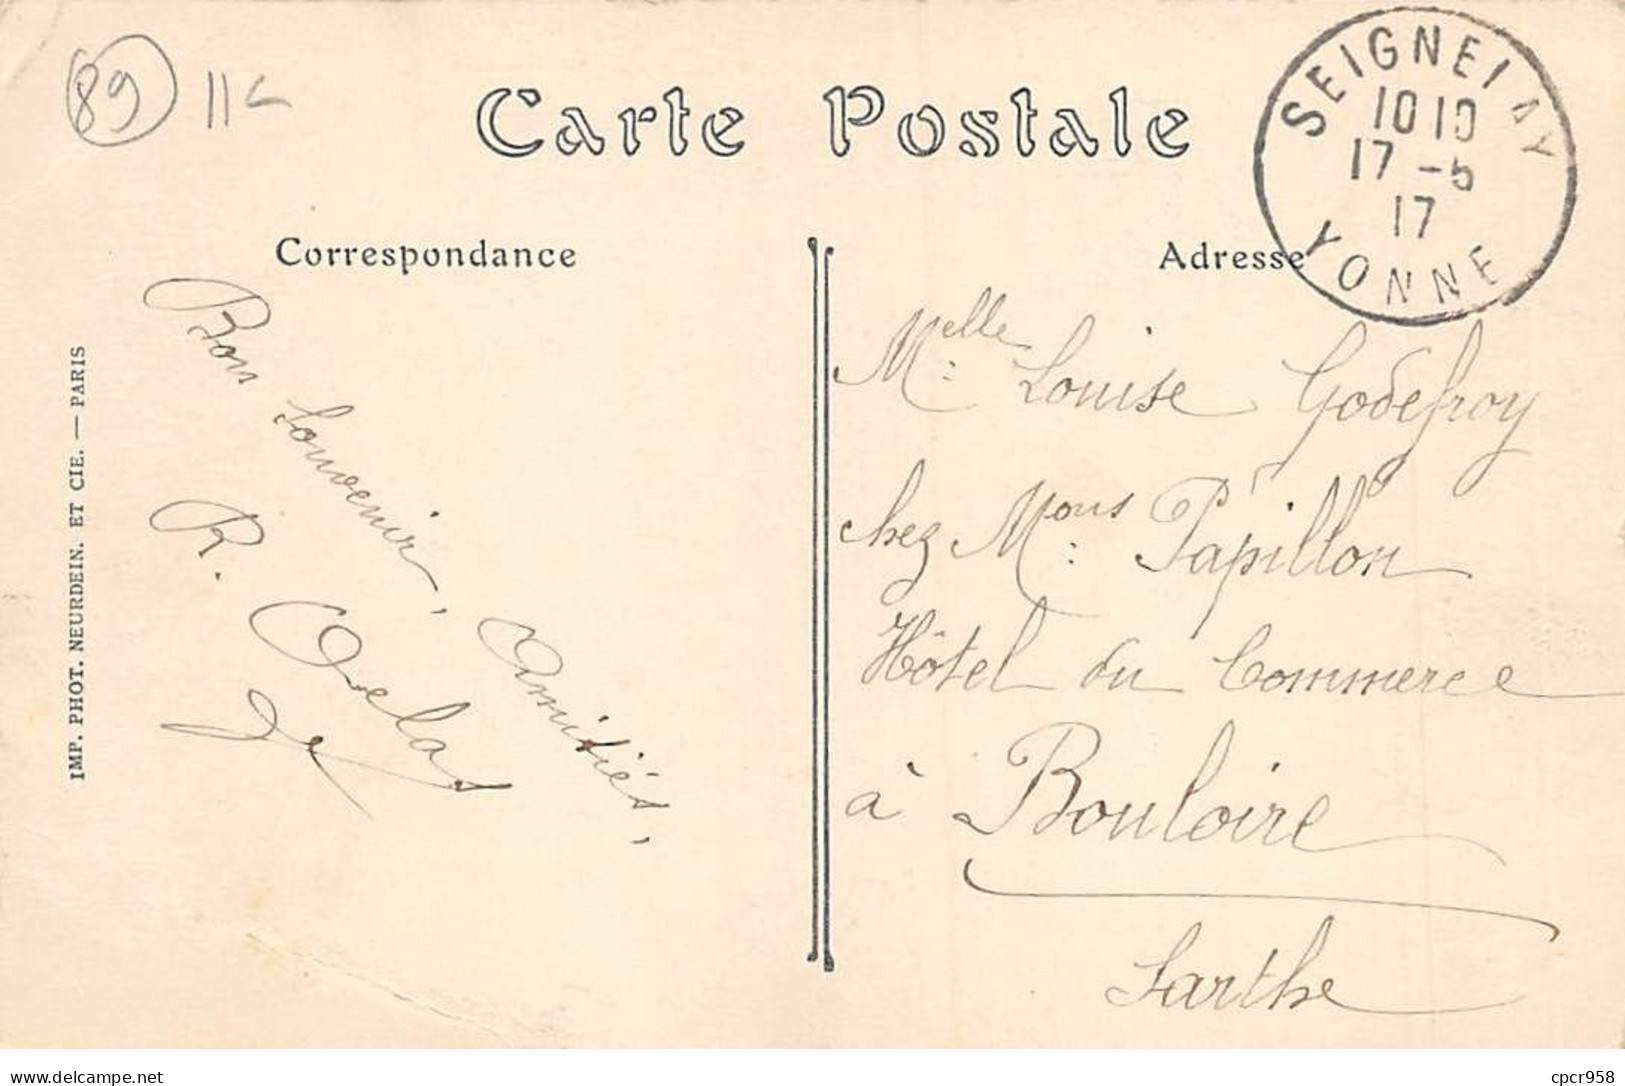 89
11c
Carte Postale
SEIGNELAY
10 10
17 -5
17
YONNE
Correspondance
Adresse
Bon Souvenir, Amitiés,
R.
IMP. PHOT. NEURDEIN. ET CIE. — PARIS
Melle Louise Godefroy
chez Mons Papillon
Hôtel du Commerce
à Bouloire
Sarthe
delcampe.net
cpcr958